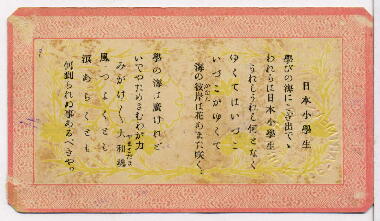 日本小學生
學びの海にこぎ出でゝ
われらは日本小學生
うれしうれし何となく
ゆくてはいづこ
いづこがゆくて
海の彼岸は花あまた咲く。
學の海は廣けれど
いでやためさむわが力
みがけく大和魂
やまとだま
風つよくとも
浪あらくとも
何割られぬ事あるべきや。